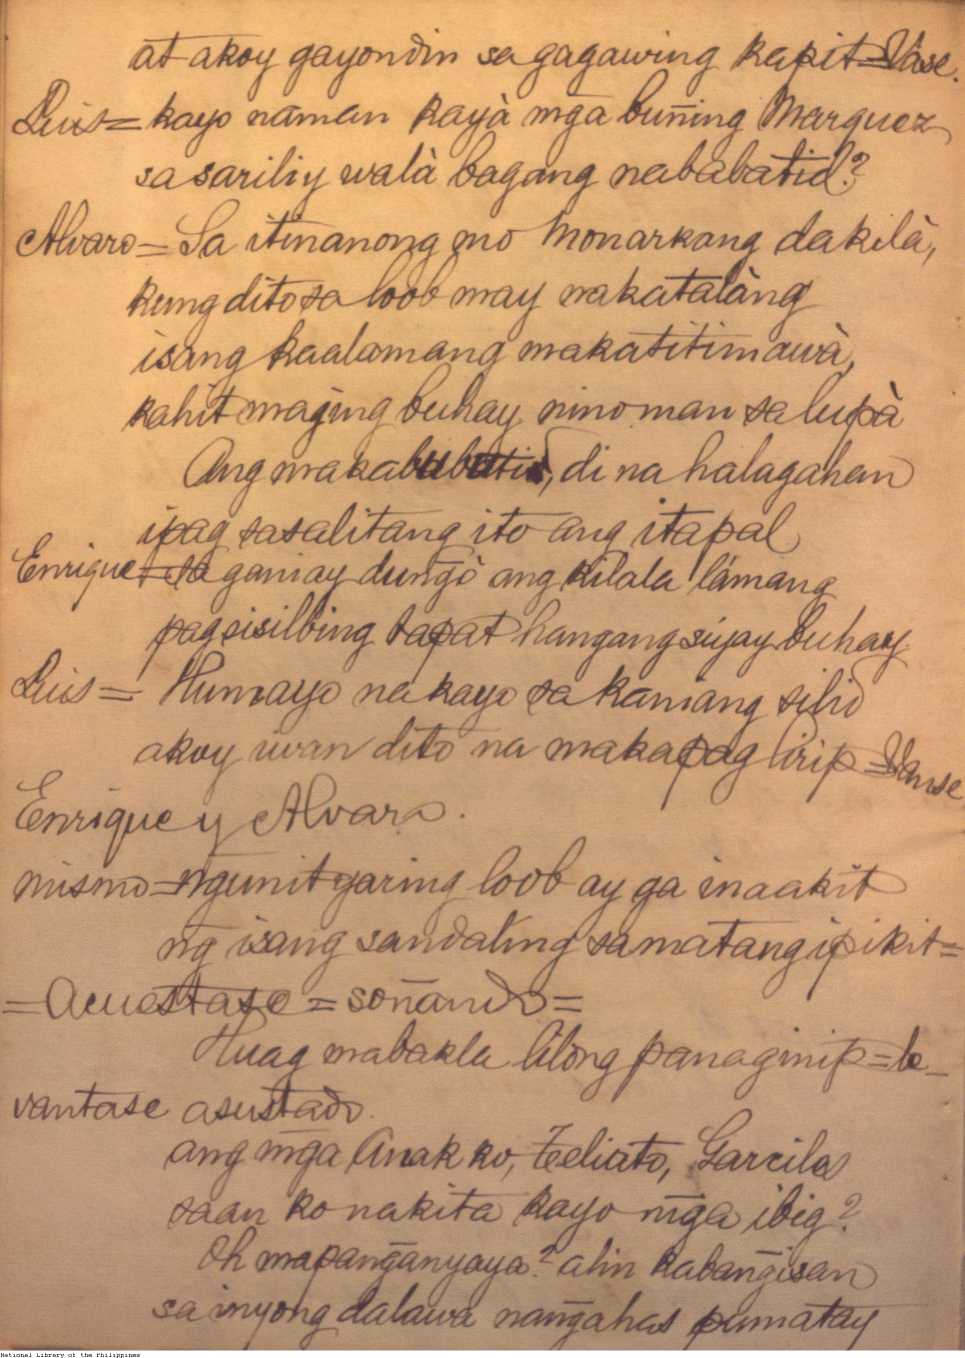 at akoy gayondin sa gagawing kapit=Vase.
Luis= kayo naman kayà mḡa buning Marquez
sa sariliy walà bagang nababatid?
Alvaro= Sa itinanong mo Monarkang dakilà,
kung dito sa loob may nakatalàng
isang kaalamang makatitimawà,
kahit maging buhay nino man sa lupà
Ang makabubuti, di na halagahan
ipag sasalitang ito ang itapal
Enrique= sa ganiay dungò ang kilala lámang
pagsisilbing tapat hangang súyay buhay
Luis= Humayo na kayo sa kaniang silid
akoy iwan dito na makapag lirip=Vanse
Enrique y Alvaro.
mismo= ngunit yaring loob ay ga inaakit
nḡ isang sandaling sa matang ipikit=
=Acuestase=soñando=
Huag mabakla lilong panaginip=le-
vantase asustado.
ang mḡa Anak ko, Feliato, Garcilas
saan ko nakita kayo mḡa ibig?
Oh mapanḡanyaya? alin kabanḡisan
sa inyong dalawa nanḡahas pumatay
National Library of the Philippines